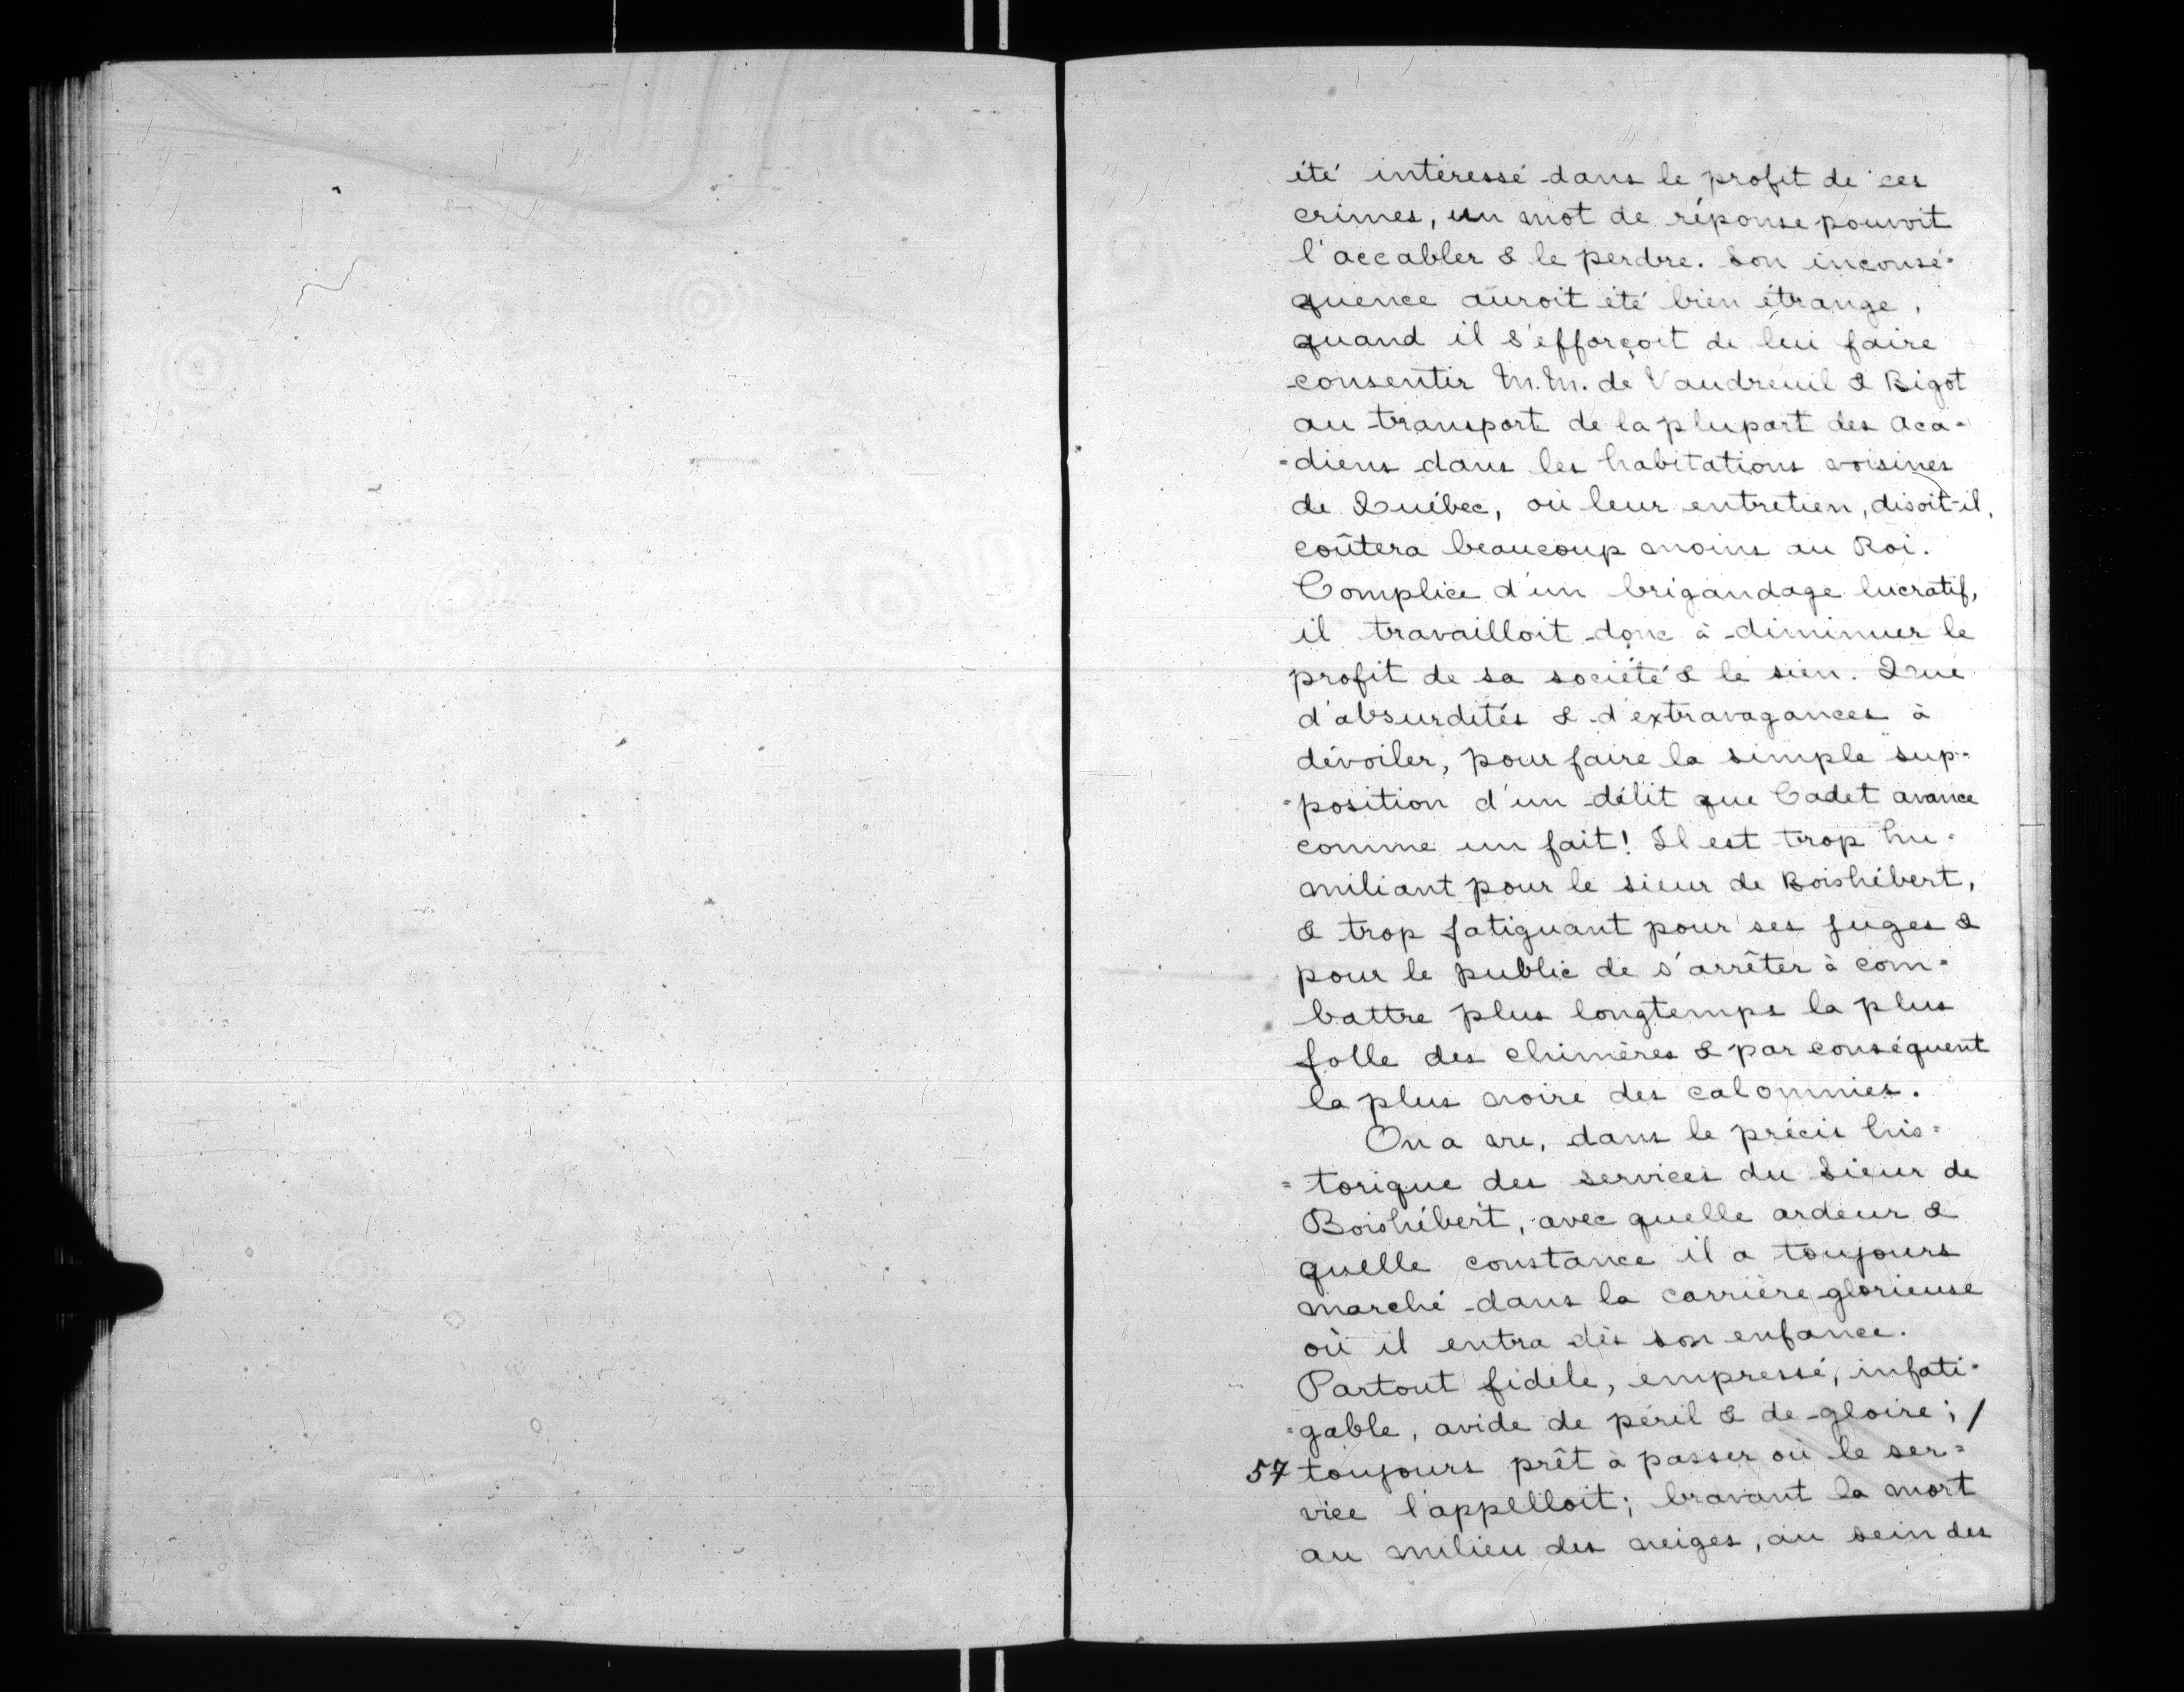 été intéressé dans le profit de ces
crimes, un mot de réponse pouvoit
l'accabler & le perdre. Son inconsé-
quence auroit été bien étrange,
quand il s'efforçoit de lui faire
consentir M.M. de Vaudreuil & Bigot
au transport de la plupart des Aca-
-diens dans les habitations voisines
de Québec, où leur entretien, disoit-il,
coûtera beaucoup moins au Roi.
Complice d'un brigandage lucratif,
il travailloit donc à diminuer le
profit de sa société & le sien. Que
d'absurdités & d'extravagances à
dévoiler, pour faire la simple sup-
-position d'un délit que Cadet avance
comme un fait! Il est trop hu-
miliant pour le sieur de Boishébert,
& trop fatiguant pour ses juges &
pour le public de s'arrêter à com-
battre plus longtemps la plus
folle des chimères & par conséquent
la plus noire des calomnies.
On a vu, dans le précis his=
=torique des services du Sieur de
Boishébert, avec quelle ardeur &
quelle constance il a toujours
marché dans la carrière glorieuse
où il entra dès son enfance.
Partout fidèle, empressé, infati-
-gable, avide de péril & de gloire; /
57 toujours prêt à passer où le ser=
vice l'appelloit; bravant la mort
au milieu des neiges, au sein des